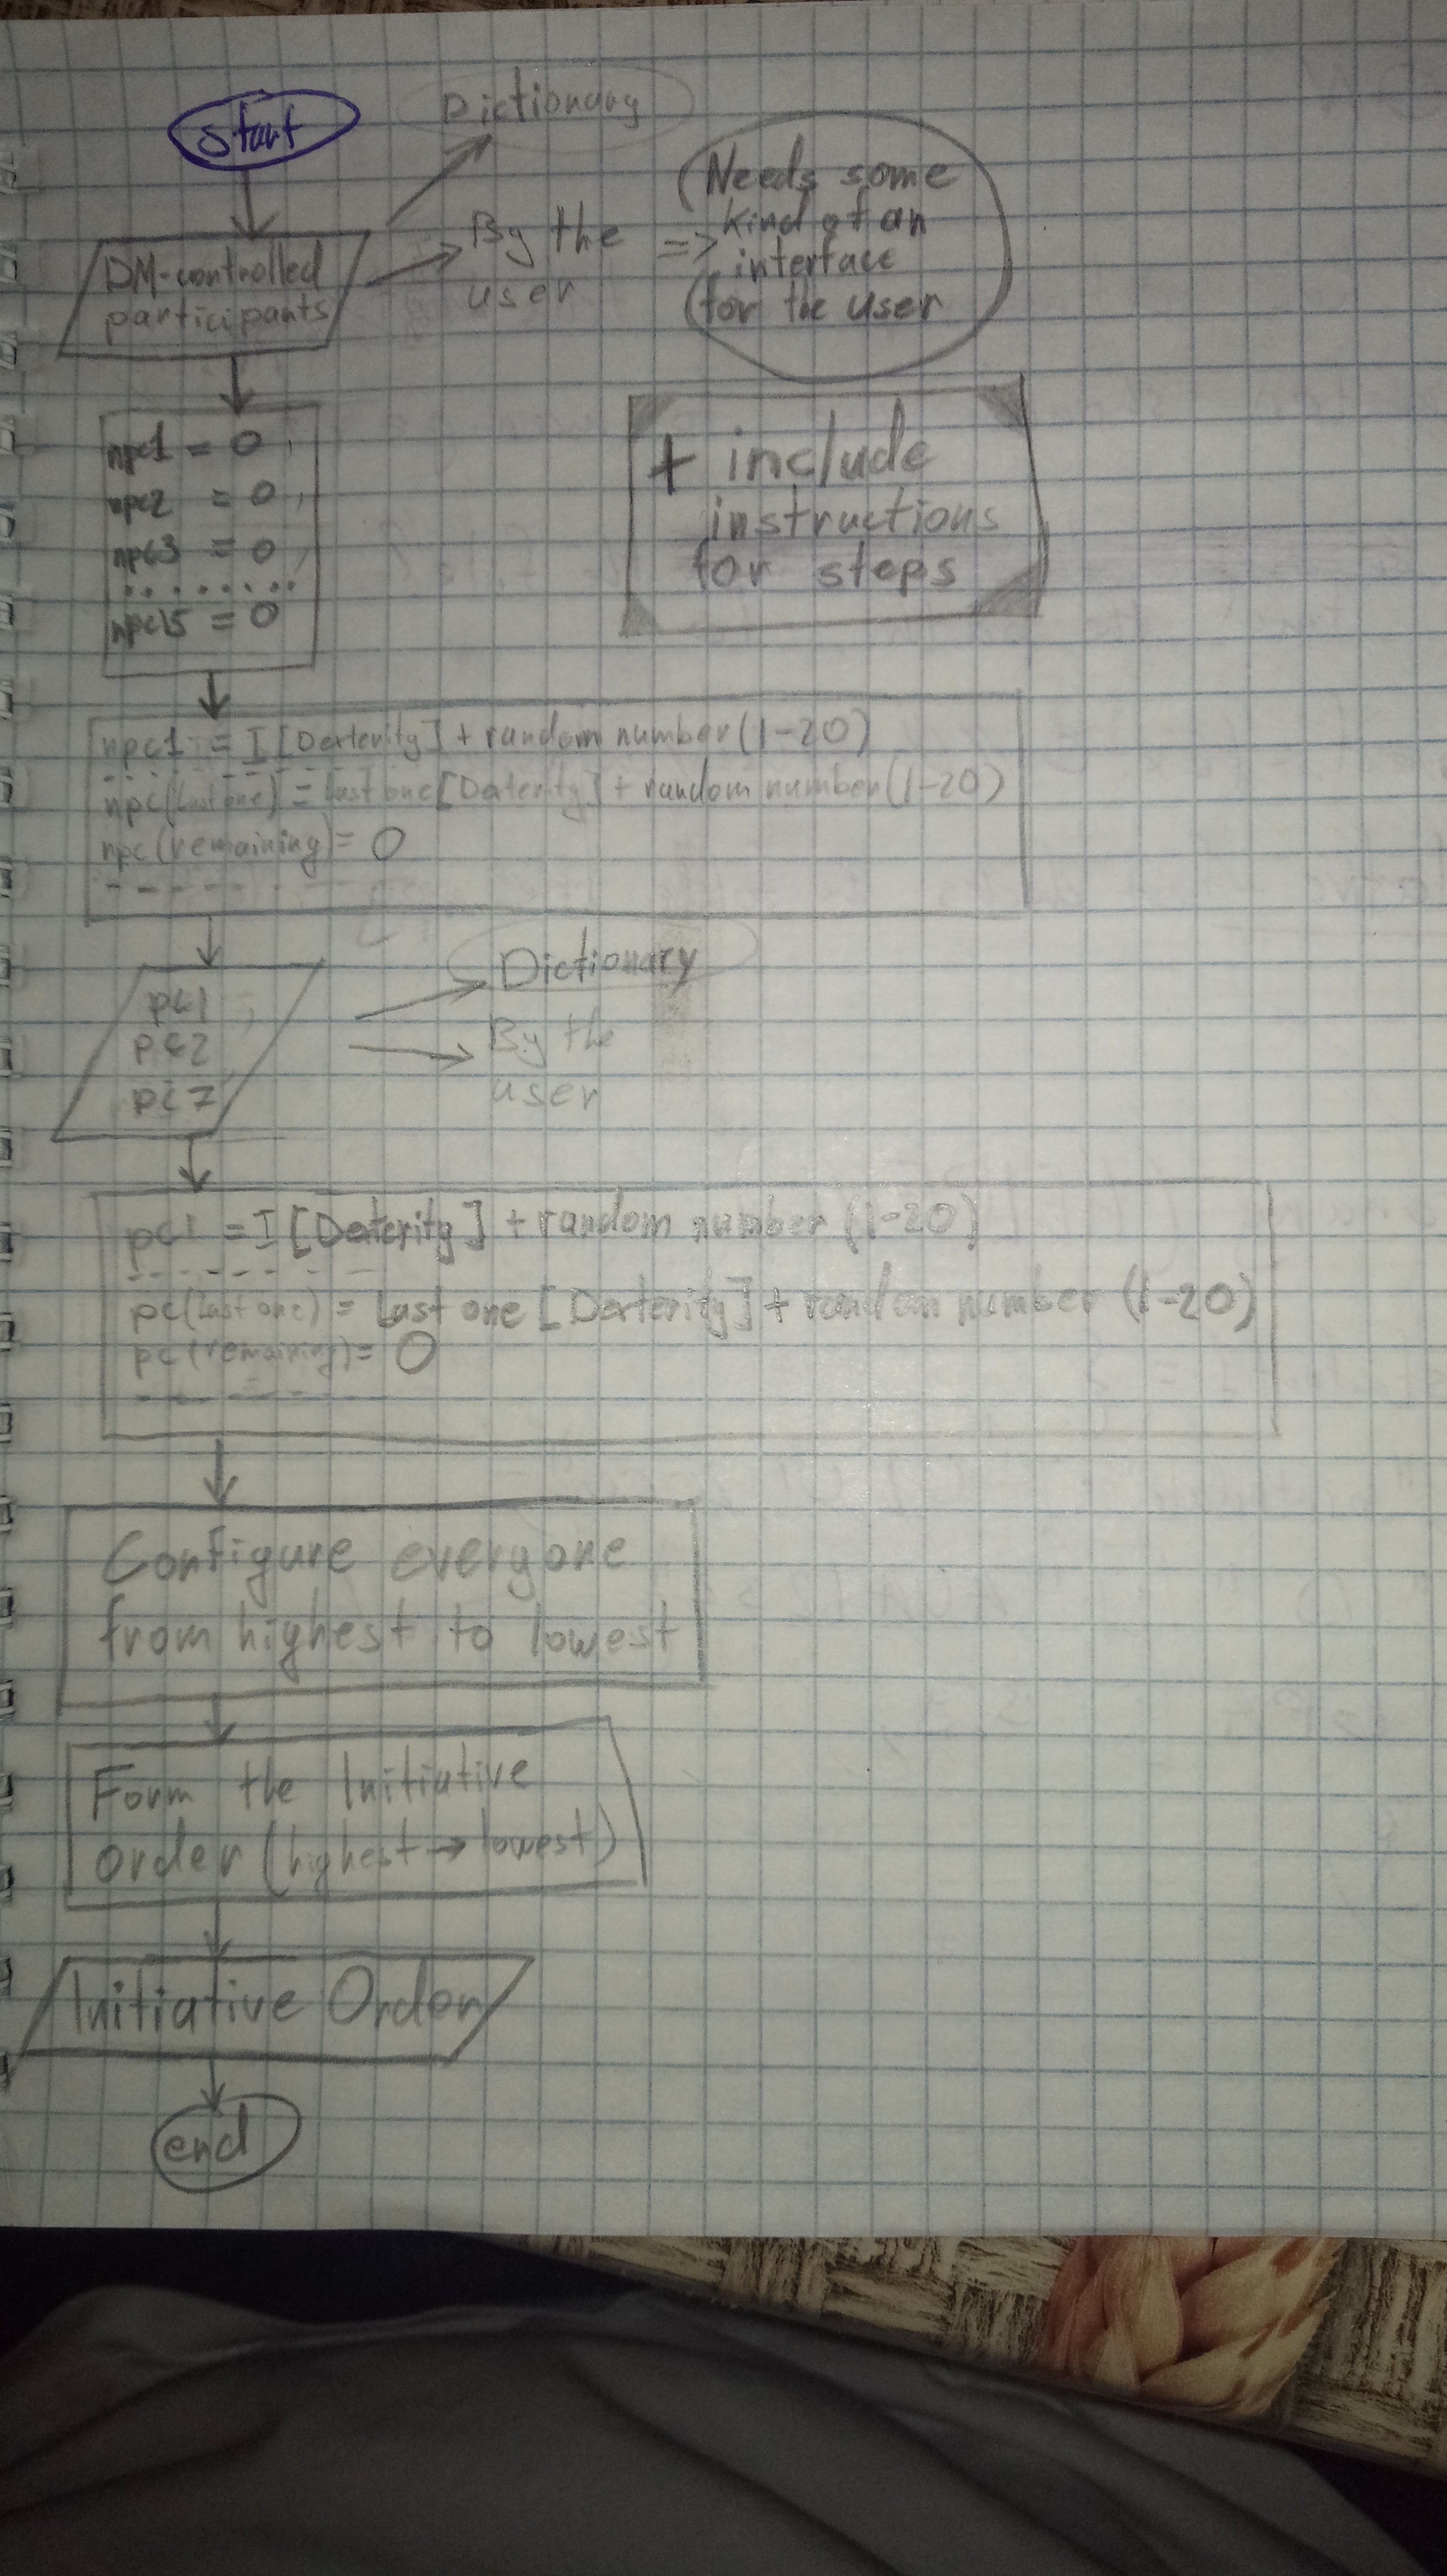 start
Dictionary
DM-controlled
participants
By the
user
=>
Needs some
kind of an
interface
for the user
npc1 = 0,
npc2 = 0,
npc3 = 0,
........
npc15 = 0
+ include
instructions
for steps
npc1 = I[Dexterity] + random number (1-20)
npc(last one) = last one[Dexterity] + random number (1-20)
npc(remaining) = 0
pc1
pc2
pc7
Dictionary
By the
user
pc1 = I[Dexterity] + random number (1-20)
pc(last one) = last one [Dexterity] + random number (1-20)
pc(remaining) = 0
Configure everyone
from highest to lowest
Form the Initiative
order (highest → lowest)
Initiative Order
end